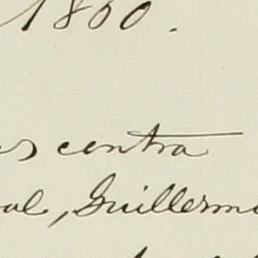 1860.
contra
al, Guillermo